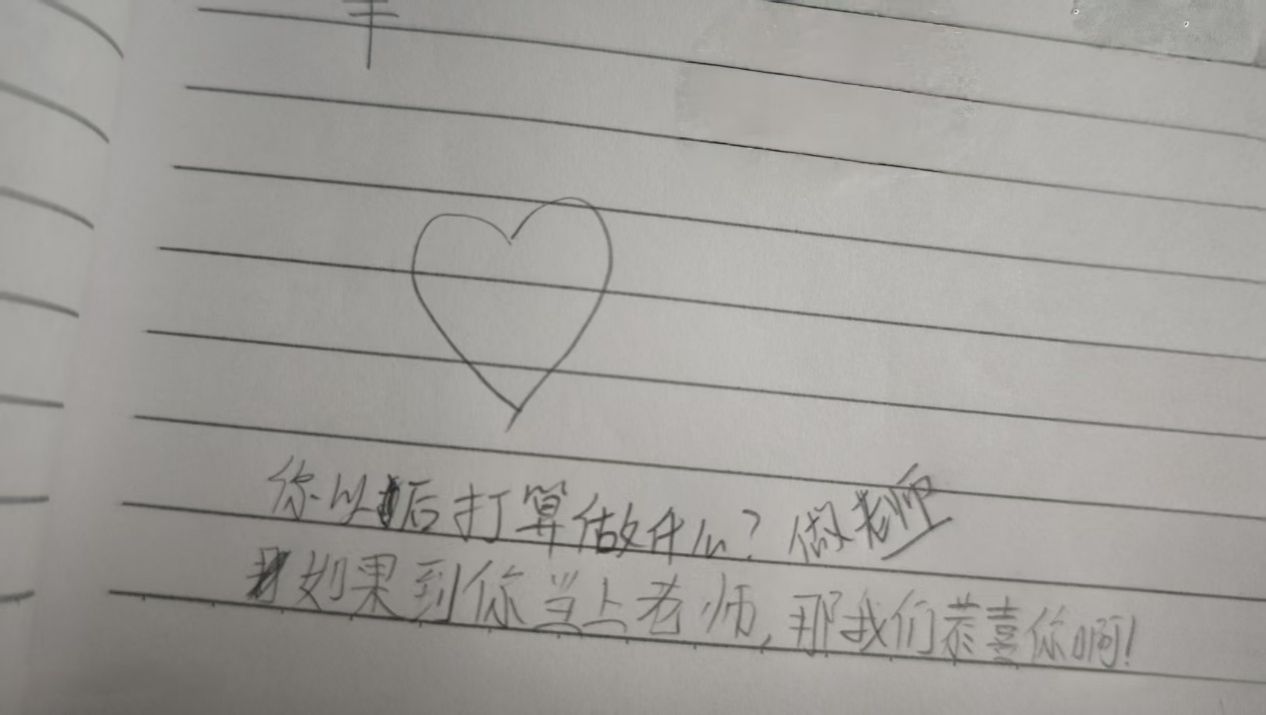 你以后打算做什么？做老师
如果到你当上老师,那我们恭喜你啊!